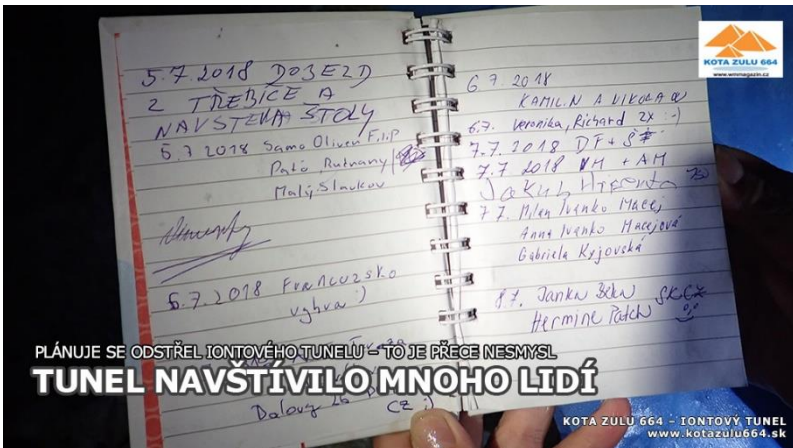 5.7.2018 DOJEZD
Z TŘEBÍČE A
NAVSTEVA ŠTOLY
5.7 2018 Samo Oliver F.i.P
Pató, Rudnany
Malý Slavkov
6.7.2018 Francuzsko
vyhra :)
CZ :)
6.7.2018
KAMIL.N A NIKOLA
6.7. Veronika, Richard 2x :-)
7.7.2018 DF + Š
7.7 2018 VH + AH
Jakub
7.7. Milan Ivanko Macej
Anna Ivanko Macejová
Gabriela Kyjovská
8.7. Janka SK CZ
Hermine Patch
KOTA ZULU 664
www.wmmagazin.cz
PLÁNUJE SE ODSTŘEL IONTOVÉHO TUNELU – TO JE PŘECE NESMYSL
TUNEL NAVŠTÍVILO MNOHO LIDÍ
KOTA ZULU 664 – IONTOVÝ TUNEL
www.kotazulu664.sk